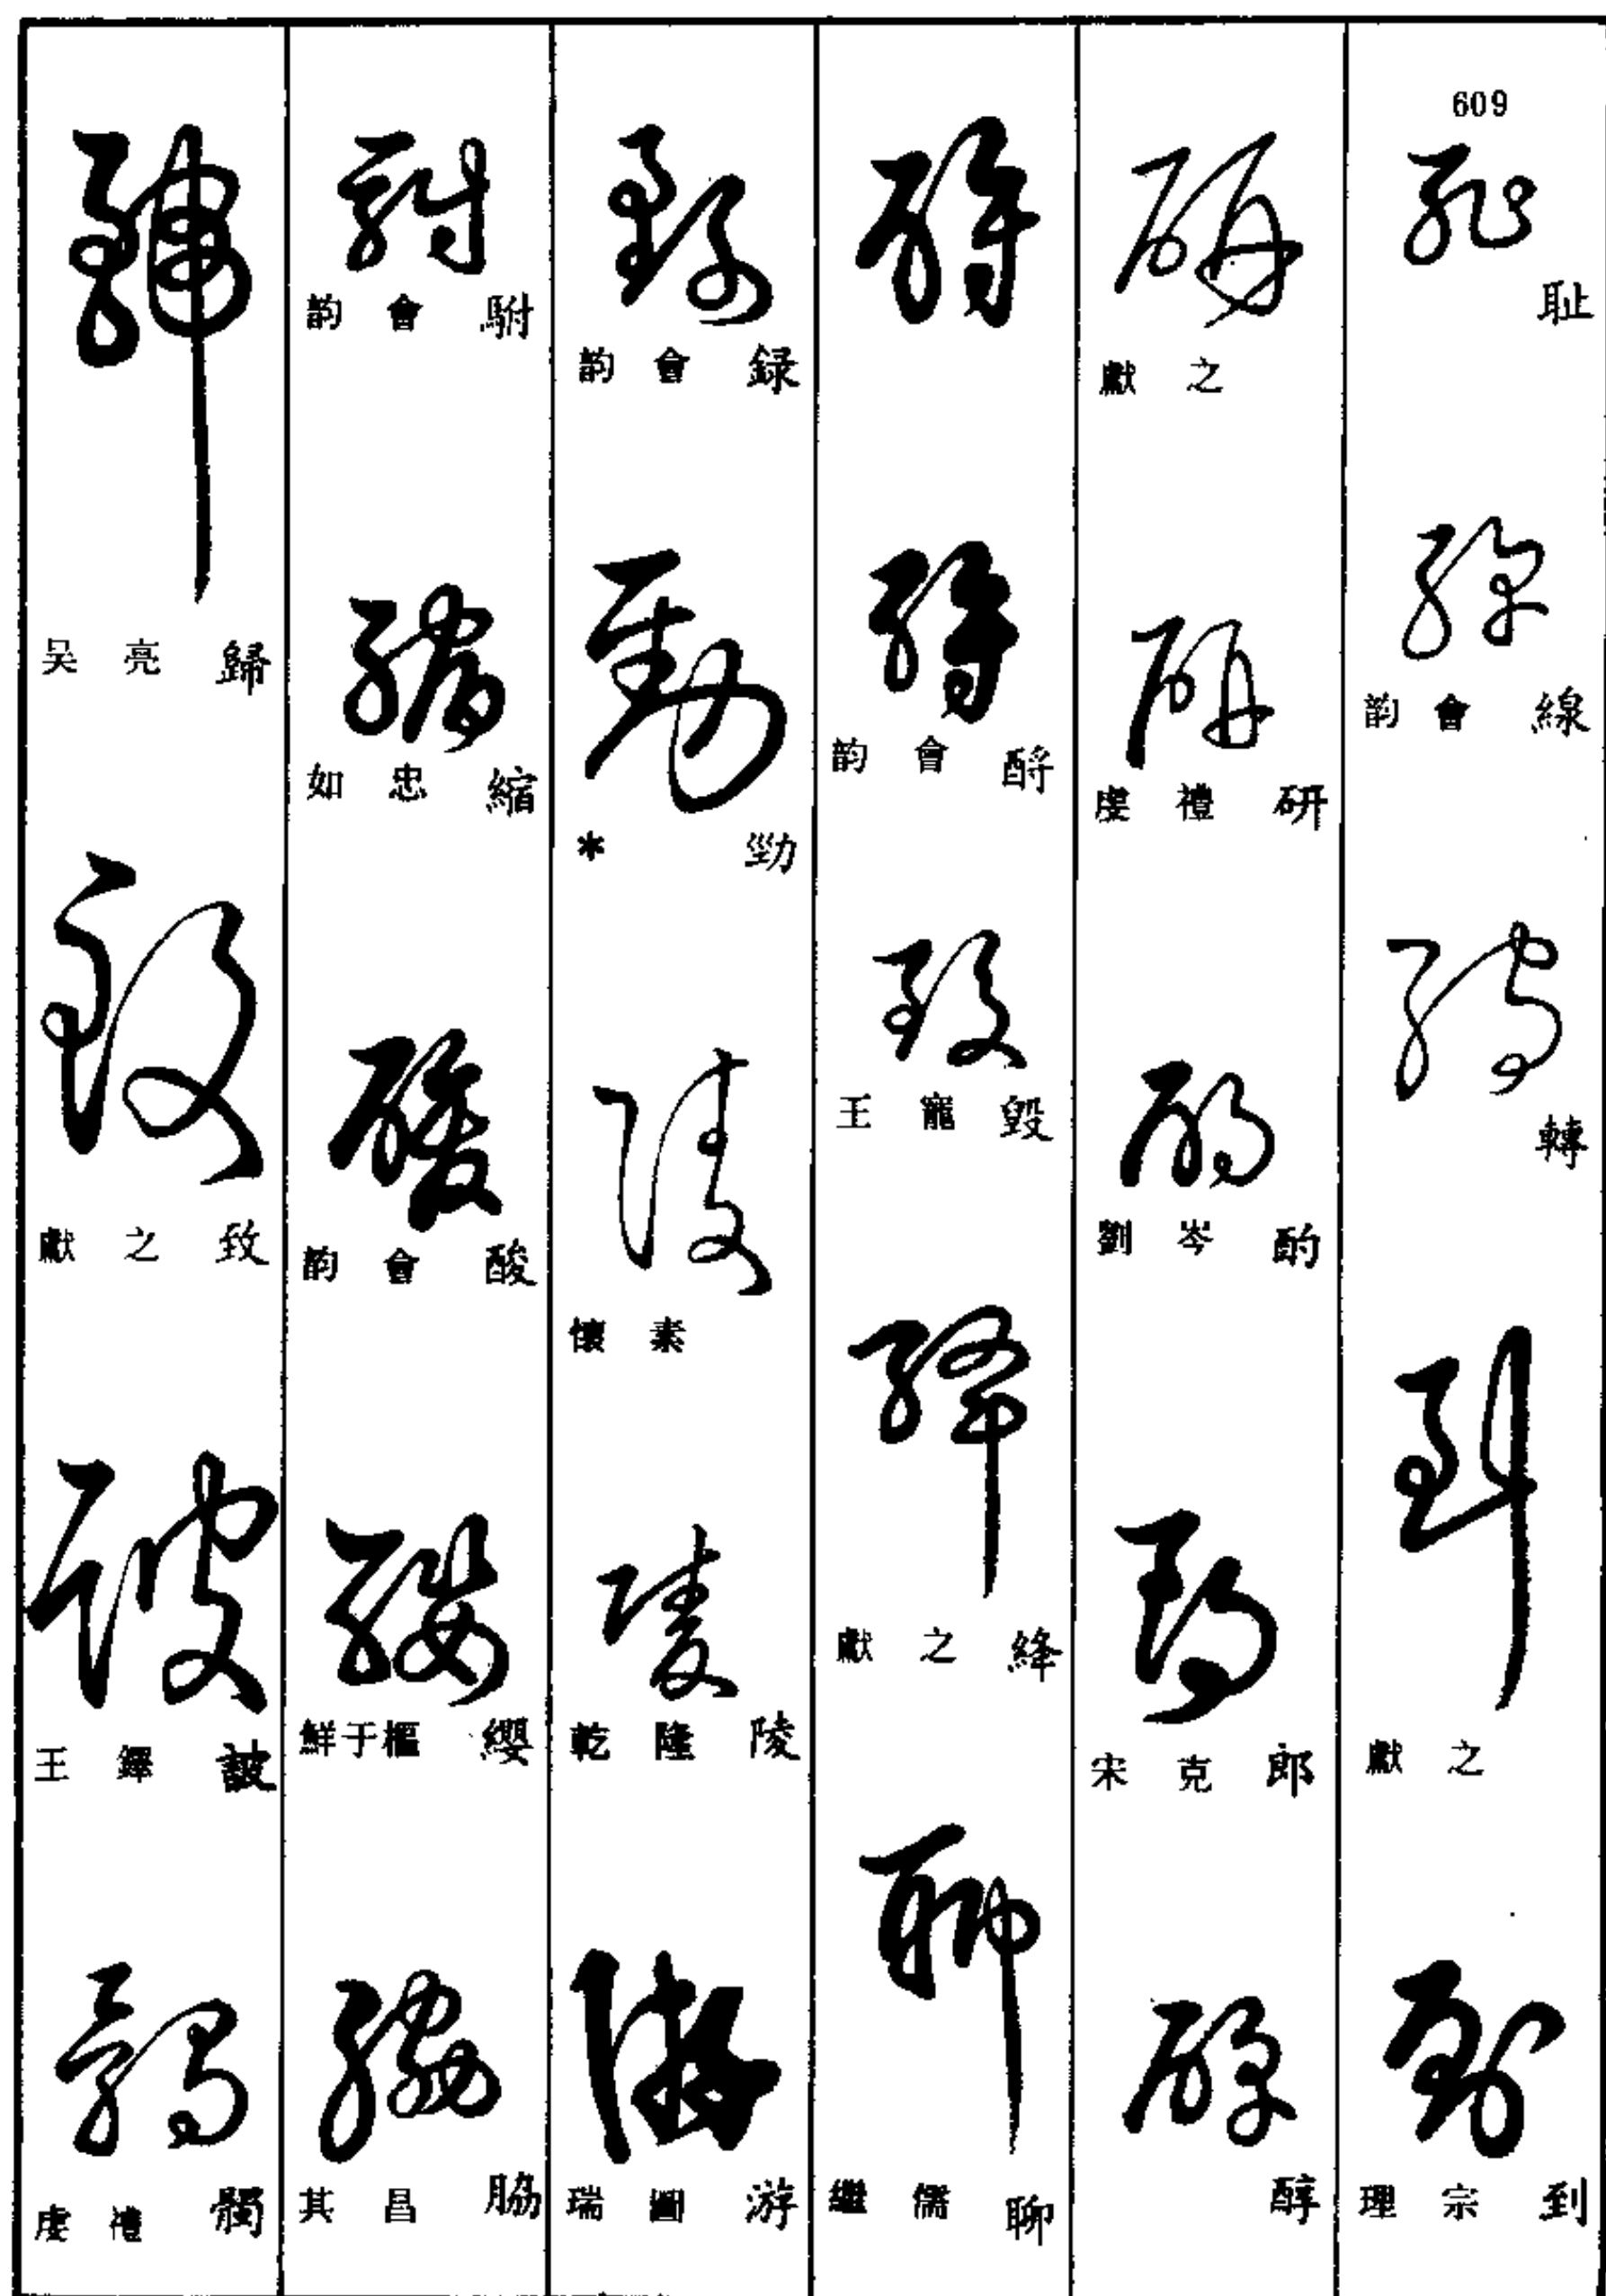 609
耻
韵會 線
轉
獻之
理宗 到
獻之
虔禮 研
劉岑 酌
宋克 郎
醇
韵會 酹
王寵 毀
獻之 絳
繼儒 聊
韵會 録
* 勁
懷素
乾隆 陵
瑞圖 游
韵會 駙
如忠 縮
韵會 酸
鮮于樞 纓
其昌 脇
吴亮 歸
獻之 致
王鐸 詖
虔禮 髑